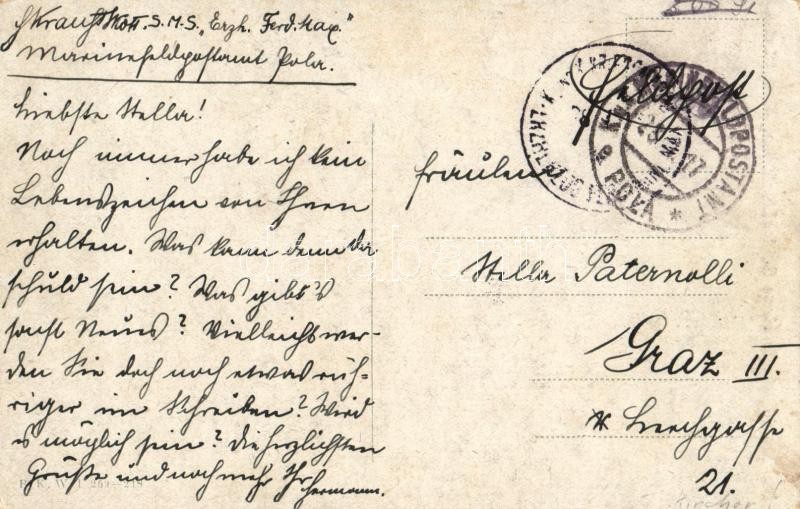 S.M.S. „Erzh. Ferd. Max."
Marinefeldpostamt Pola.
Liebste Stella!
Noch immer habe ich kein
Lebenszeichen von Ihnen
erhalten. Was kann denn da
schuld sein? Was gibt's
sonst Neues? Vielleicht wer-
den Sie doch noch etwas rüh-
riger im Schreiben? Wird
es möglich sein? Die herzlichsten
Grüße und noch mehr Ihr
Hermann.
Feldpost
POLA
17
Fräulein
Stella Paternolli
Graz III.
Lechgasse
21.